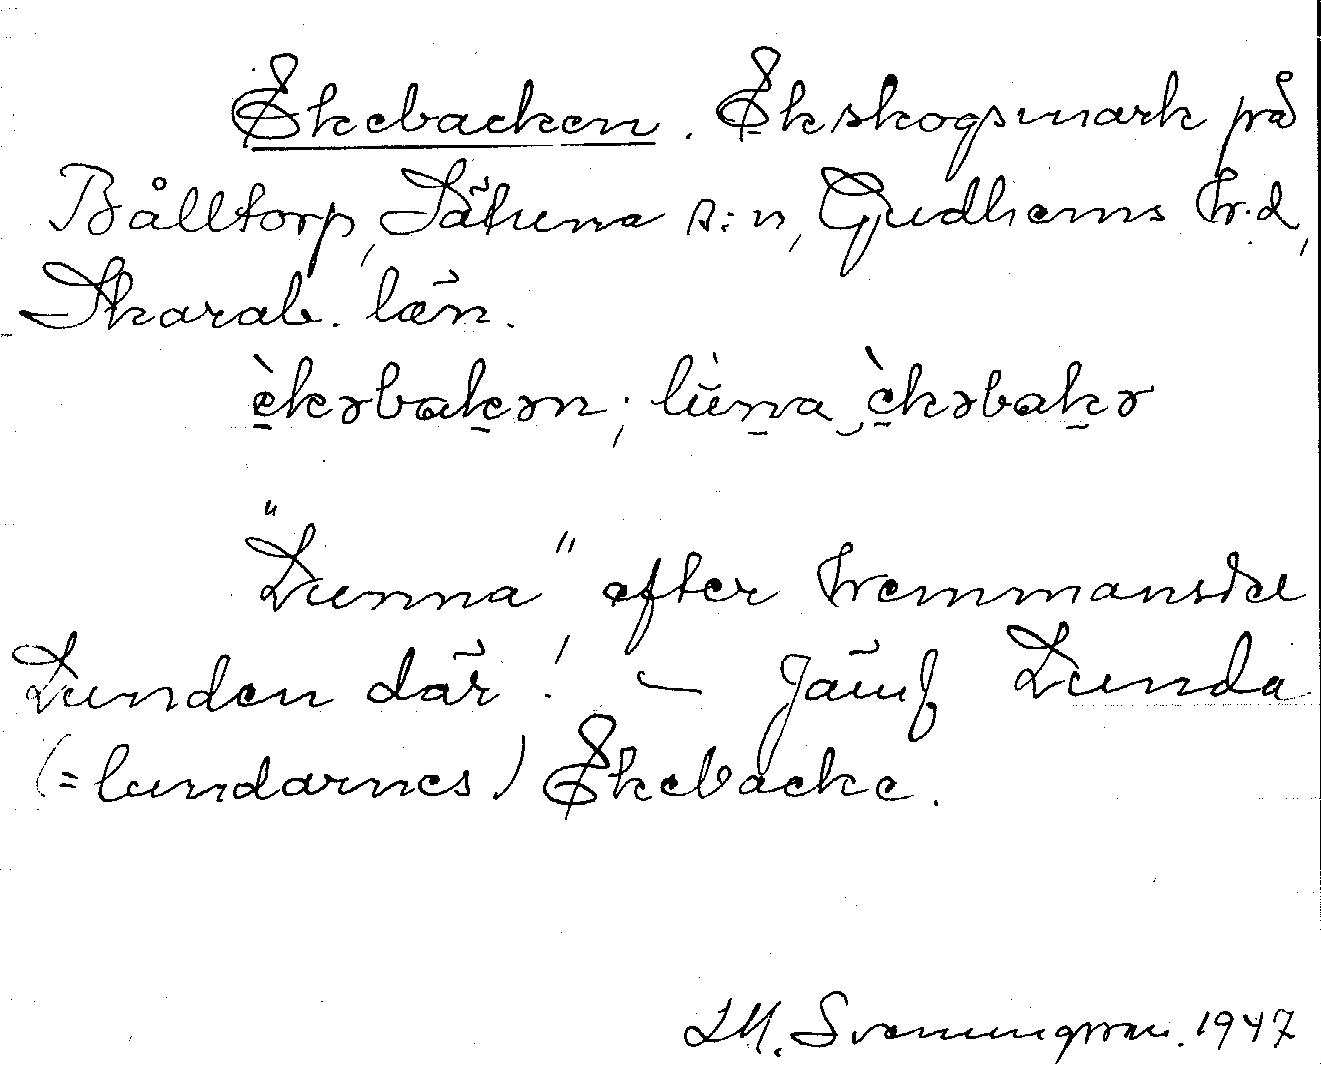 Ekebacken. Ekskogsmark på
Bålltorp, Sätuna s:n, Gudhems h:d,
Skarab. län.
èkəbakən; lùna èkəbakə
"Lunna" efter hemmansdel
Lunden där! – Jämf Lunda
(= lundarnes) Ekebacke.
Svenungsson. 1947